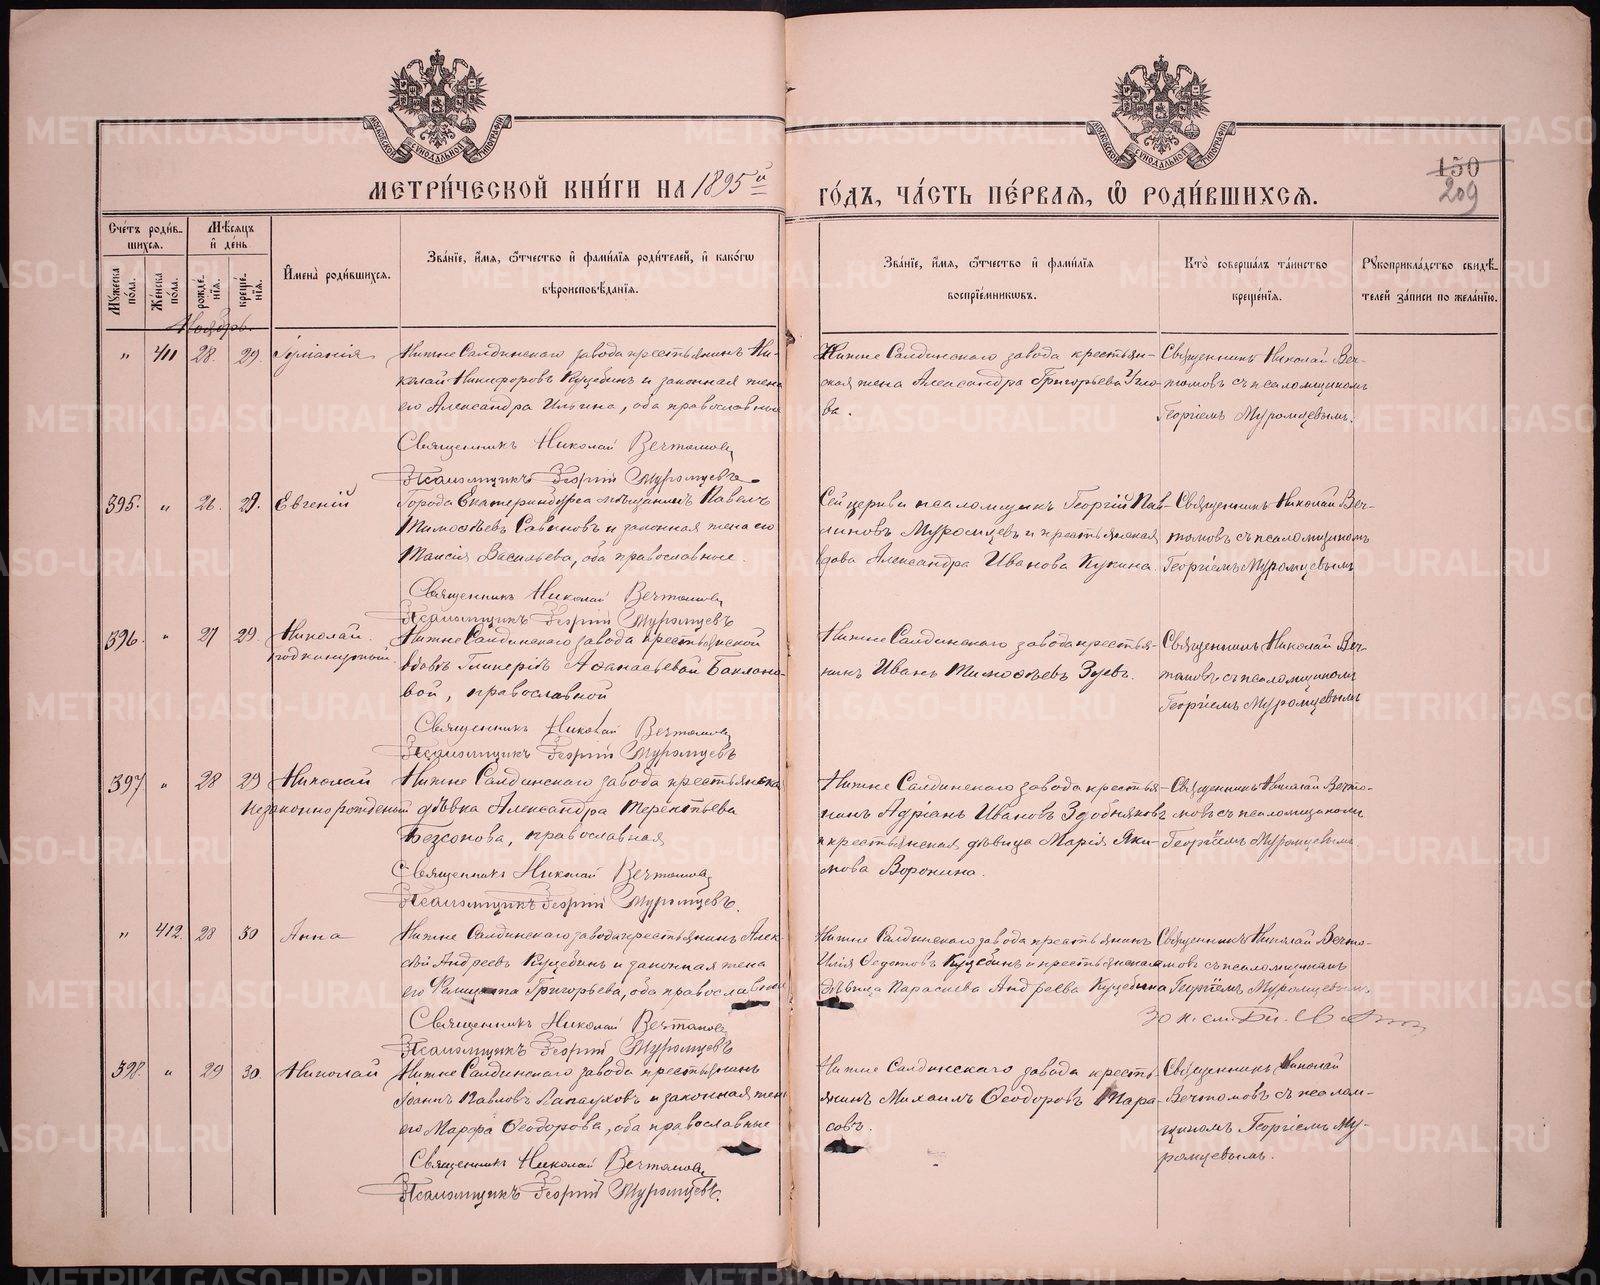 МОСКОВСКОЙ СѴНОДАЛЬНОЙ ТИПОГРАФІИ
МОСКОВСКОЙ СѴНОДАЛЬНОЙ ТИПОГРАФІИ
150
209
МЕТРИ́ЧЕСКОЙ КНИ́ГИ НА 1895й ГО́ДЪ, ЧА́СТЬ ПЕ́РВАЯ, Ѽ РОДИ́ВШИХСЯ.
Сче́тъ роди́в-
шихся.
Мѣ́сяцъ
и де́нь
Имена̀ роди́вшихся.
Зва́нїе, и́мя, ѻ́тчество и фами́лїя роди́телей, и како́гѡ
вѣроисповѣ́данїя.
Зва́нїе, и́мя, ѻ́тчество и фами́лїя
воспрїе́мникѡвъ.
Кто̀ соверша́лъ та́инство
креще́нїя.
Рꙋкоприкла́дство свидѣ́-
телей за́писи по жела́нїю.
Мꙋ́жеска по́ла.
Же́нска по́ла.
рожде́-
нїя.
креще́-
нїя.
Ноябрь.
" 411 28. 29. Іуліанія
Нижне Салдинскаго завода крестьянинъ Ни-
колай Никифоровъ Куцебинъ и законная жена
его Александра Ильина, оба православные
Священникъ Николай Вечтомовъ
Псаломщикъ Георгій Муромцевъ
Нижне Салдинскаго завода крестьян-
ская жена Александра Григорьева
ва.
Священникъ Николай Веч-
томовъ съ псаломщикомъ
Георгіемъ Муромцевымъ.
395. " 26. 29. Евгеній
Города Екатеринбурга мѣщанинъ Павелъ
Тимоѳѣевъ Савиновъ и законная жена его
Таисія Васильева, оба православные.
Священникъ Николай Вечтомовъ
Псаломщикъ Георгій Муромцевъ
Сей церкви псаломщикъ Георгій Пав-
линовъ Муромцевъ и крестьянская
вдова Александра Иванова Кукина.
Священникъ Николай Веч-
томовъ съ псаломщикомъ
Георгіемъ Муромцевымъ
396. " 27 29. Николай
подкинутый
Нижне Салдинскаго завода крестьянской
вдовѣ Гликеріѣ Аѳанасьевой Баклано-
вой, православной
Священникъ Николай Вечтомовъ
Псаломщикъ Георгій Муромцевъ
Нижне Салдинскаго завода крестья-
нинъ Иванъ Тимоѳѣевъ Зуевъ.
Священникъ Николай Веч-
томовъ съ псаломщикомъ
Георгіемъ Муромцевымъ
397 " 28 29 Николай
незаконнорожденный
Нижне Салдинскаго завода крестьянская
дѣвка Александра Терентьева
Безсонова, православная
Священникъ Николай Вечтомовъ
Псаломщикъ Георгій Муромцевъ.
Нижне Салдинскаго завода крестья-
нинъ Адріанъ Ивановъ Здобняковъ
и крестьянская дѣвица Марія Яки-
мова Воронина.
Священникъ Николай Вечто-
мовъ съ псаломщикомъ
Георгіемъ Муромцевымъ.
" 412. 28 30 Анна
Нижне Салдинскаго завода крестьянинъ Алек-
сѣй Андреевъ Куцебинъ и законная жена
его Григорьева, оба православные
Священникъ Николай Вечтомовъ
Псаломщикъ Георгій Муромцевъ
Нижне Салдинскаго завода крестьянинъ
Илія Ѳедотовъ Куцебинъ и крестьянская
дѣвица Параскева Андреева Куцебина
Священникъ Николай Вечто-
мовъ съ псаломщикомъ
Георгіемъ Муромцевымъ
398. " 29 30. Николай
Нижне Салдинскаго завода крестьянинъ
Іоаннъ Павловъ Лапауховъ и законная жена
его Марѳа Ѳеодорова, оба православные
Священникъ Николай Вечтомовъ
Псаломщикъ Георгій Муромцевъ.
Нижне Салдинскаго завода кресть-
янинъ Михаилъ Ѳеодоровъ Тара-
совъ.
Священникъ Николай
Вечтомовъ съ псалом-
щикомъ Георгіемъ Му-
ромцевымъ.
METRIKI.GASO-URAL.RU